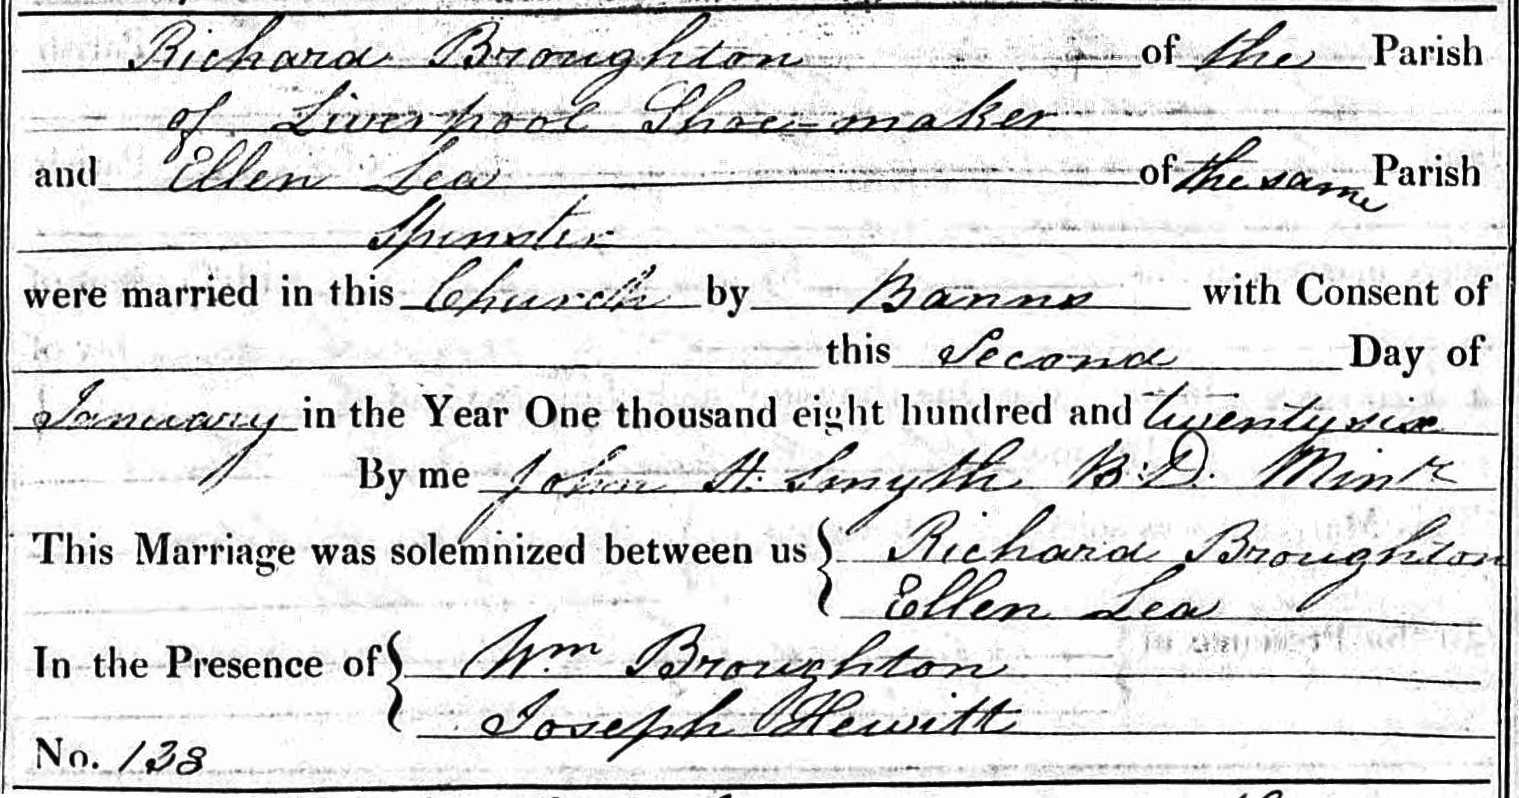 Richard Broughton of the Parish
of Liverpool Shoe-maker
and Ellen Lea of the same Parish
Spinster
were married in this Church by Banns with Consent of
this Second Day of
January in the Year One thousand eight hundred and twenty six
By me John H. Smyth B.D. Minr
This Marriage was solemnized between us { Richard Broughton
Ellen Lea
In the Presence of { Wm Broughton
Joseph Hewitt
No. 138